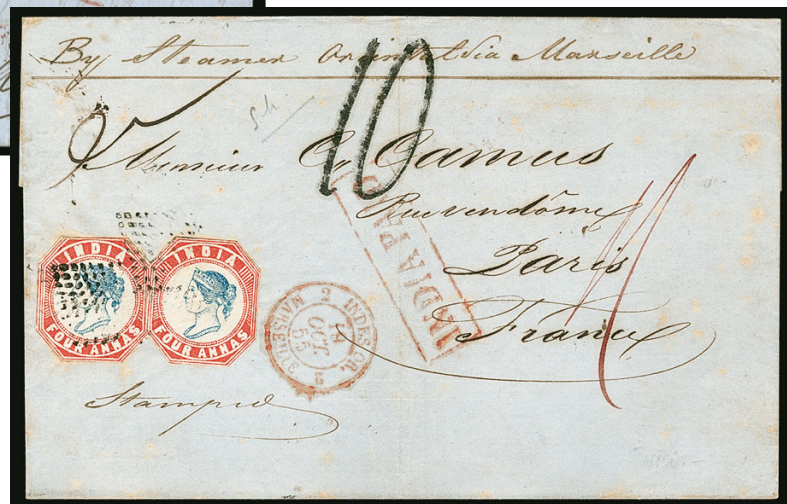 By Steamer Oriental via Marseille
10
Monsieur Cy Camus
Rue vendôme
Paris
France
INDIA PAID
INDIA
FOUR ANNAS
INDIA
FOUR ANNAS
2 INDES OR. 2
14
OCT.
55
MARSEILLE
Stamped